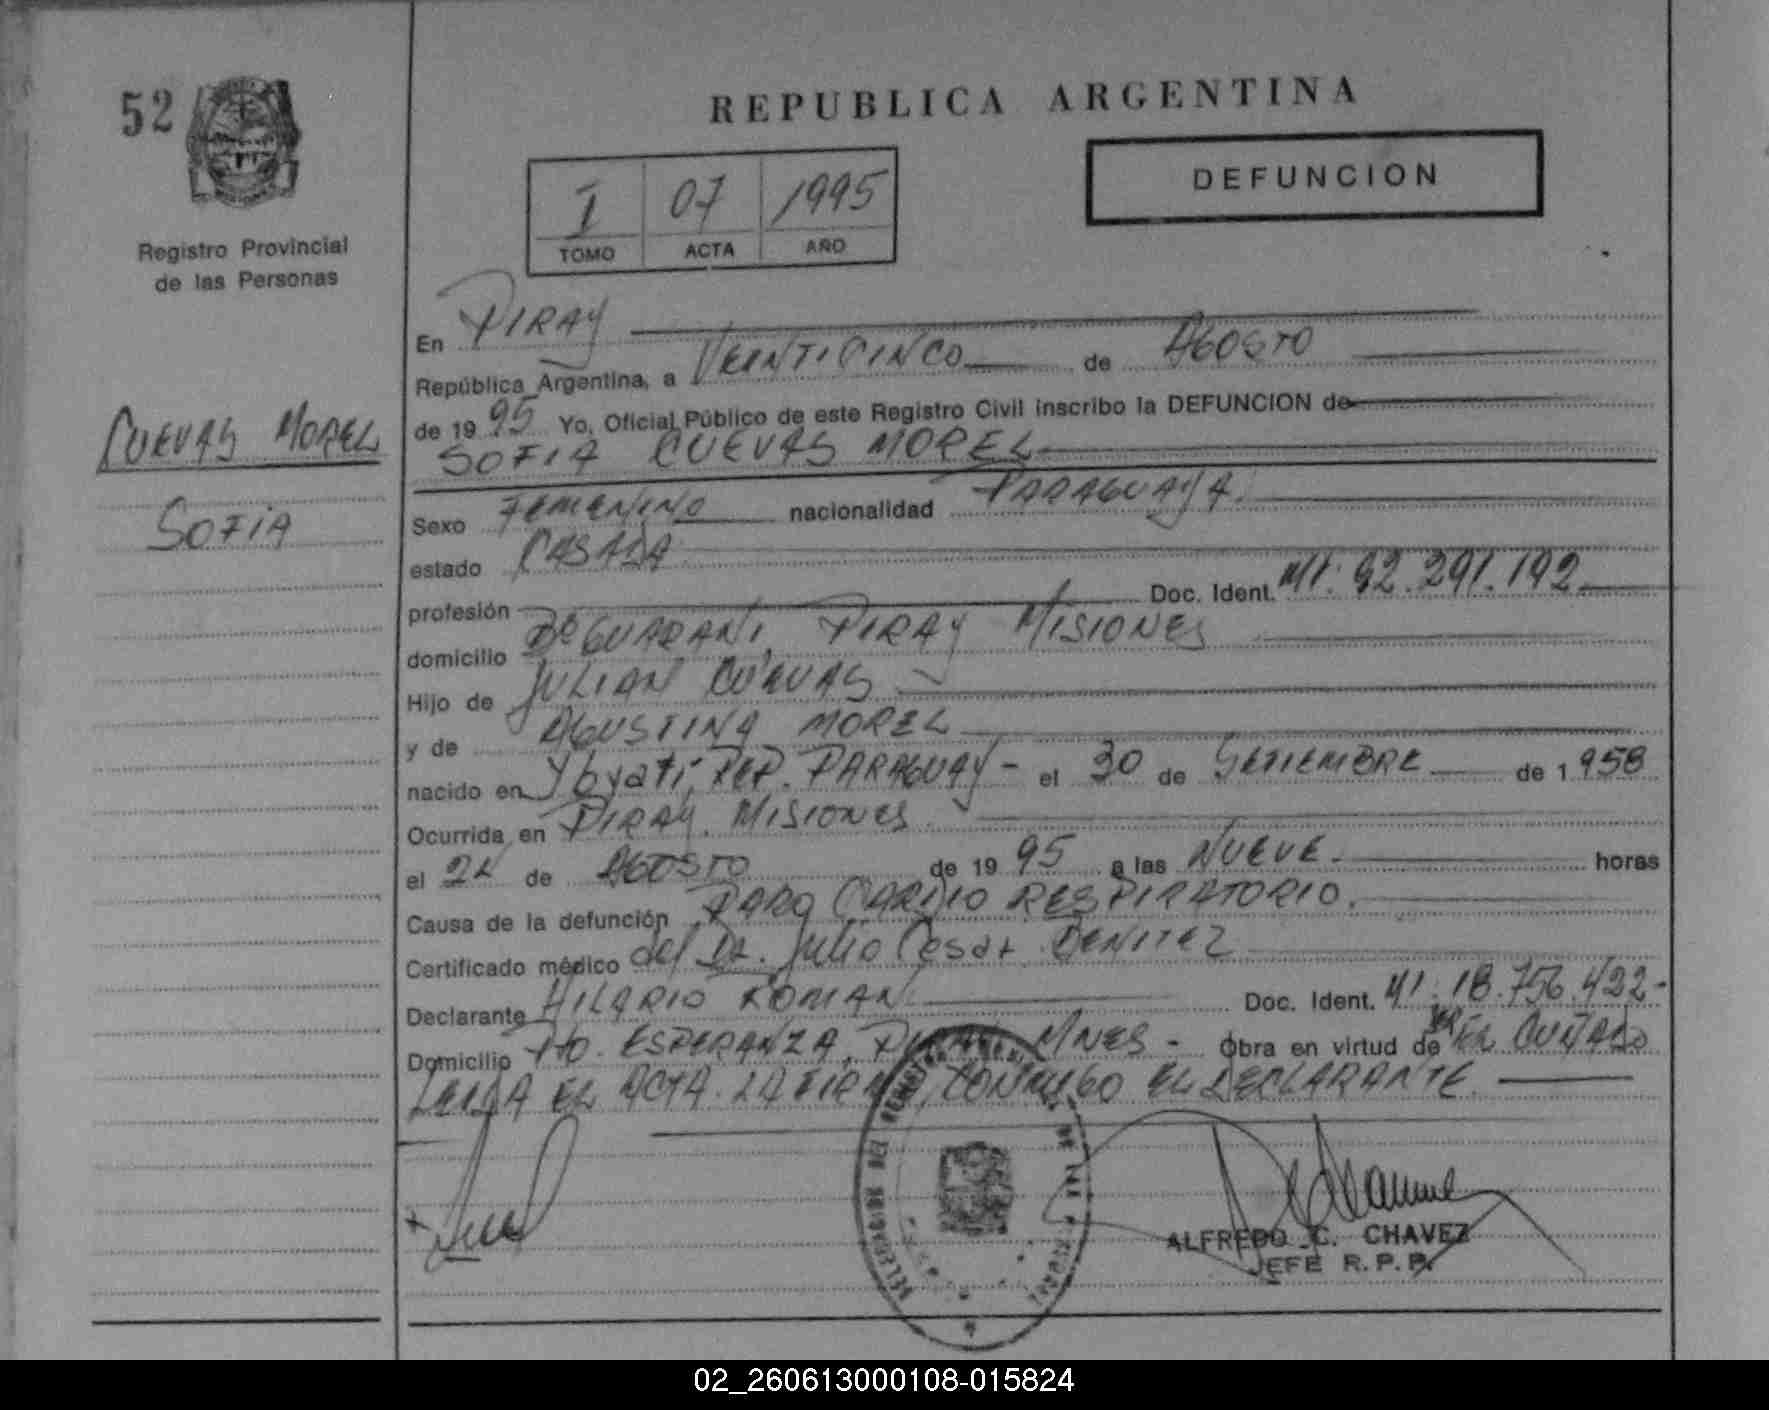 52
Registro Provincial
de las Personas
CUEVAS MOREL
SOFIA
REPUBLICA ARGENTINA
I 07 1995
TOMO ACTA AÑO
DEFUNCION
En PIRAY
República Argentina, a VEINTICINCO de AGOSTO
de 1995 Yo, Oficial Público de este Registro Civil inscribo la DEFUNCION de
SOFIA CUEVAS MOREL
Sexo FEMENINO nacionalidad PARAGUAYA.
estado CASADA
profesión Doc. Ident. MI. 92.291.192
domicilio Bº GUARANI, PIRAY MISIONES
Hijo de JULIAN CUEVAS
y de AGUSTINA MOREL
nacido en Ybyati, REP. PARAGUAY - el 30 de SETIEMBRE de 1958
Ocurrida en PIRAY. MISIONES
el 24 de AGOSTO de 1995 a las NUEVE. horas
Causa de la defunción PARO CARDIO RESPIRATORIO.
Certificado médico del Dr. Julio Cesar BENITEZ
Declarante HILARIO ROMAN Doc. Ident. MI. 18.756.422-
Domicilio Pto. ESPERANZA, PIRAY MNES - Obra en virtud de SER CUÑADO
LEIDA EL ACTA. LA FIRMA CONMIGO EL DECLARANTE.
ALFREDO C. CHAVEZ
JEFE R.P.P.
02_260613000108-015824